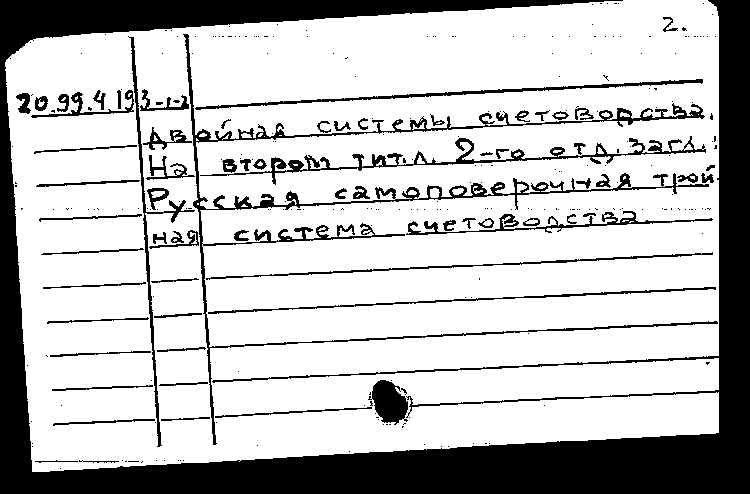 2.
20.99.4.193-1-2
двойная системы счетоводства.
На втором тит.л. 2-го отд. загл.:
Русская самоповерочная трой
ная система счетоводства.